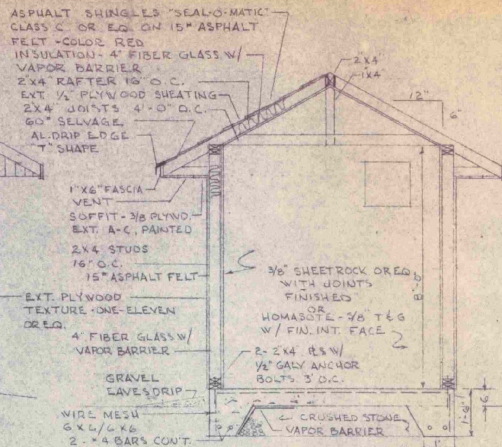 ASPHALT SHINGLES "SEAL-O-MATIC"
CLASS C OR EQ. ON 15# ASPHALT
FELT - COLOR RED
INSULATION - 4" FIBER GLASS W/
VAPOR BARRIER
2"X4" RAFTER 16" O.C.
EXT ½" PLYWOOD SHEATING
2"X4" JOISTS 4'-0" O.C.
60# SELVAGE
AL. DRIP EDGE
"T" SHAPE
2"X4"
1"X4"
12"
5"
1"X6" FASCIA
VENT
SOFFIT - 3/8 PLYWD.
EXT. A-C, PAINTED
2X4 STUDS
16" O.C.
15# ASPHALT FELT
EXT. PLYWOOD
TEXTURE - ONE-ELEVEN
OR EQ.
4" FIBER GLASS W/
VAPOR BARRIER
3/8" SHEETROCK OR EQ
WITH JOINTS
FINISHED
OR
HOMASOTE - 5/8" T & G
W/ FIN. INT. FACE
8'-0"
2- 2"X4" PLS W/
½" GALV ANCHOR
BOLTS. 3' O.C.
GRAVEL
EAVESDRIP
WIRE MESH
6X6/6X6
2 - #4 BARS CON'T.
CRUSHED STONE
VAPOR BARRIER
6"
1'-6"